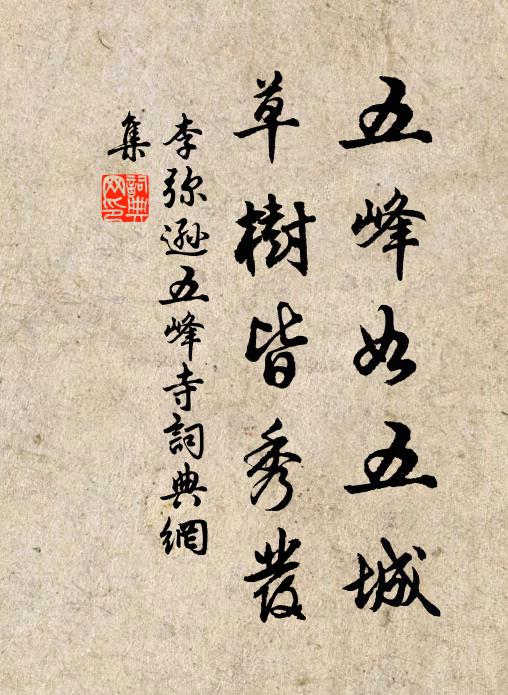 五峰如五城
草樹皆秀發
李弥遜五峰寺詞典網
集
詞典
网印